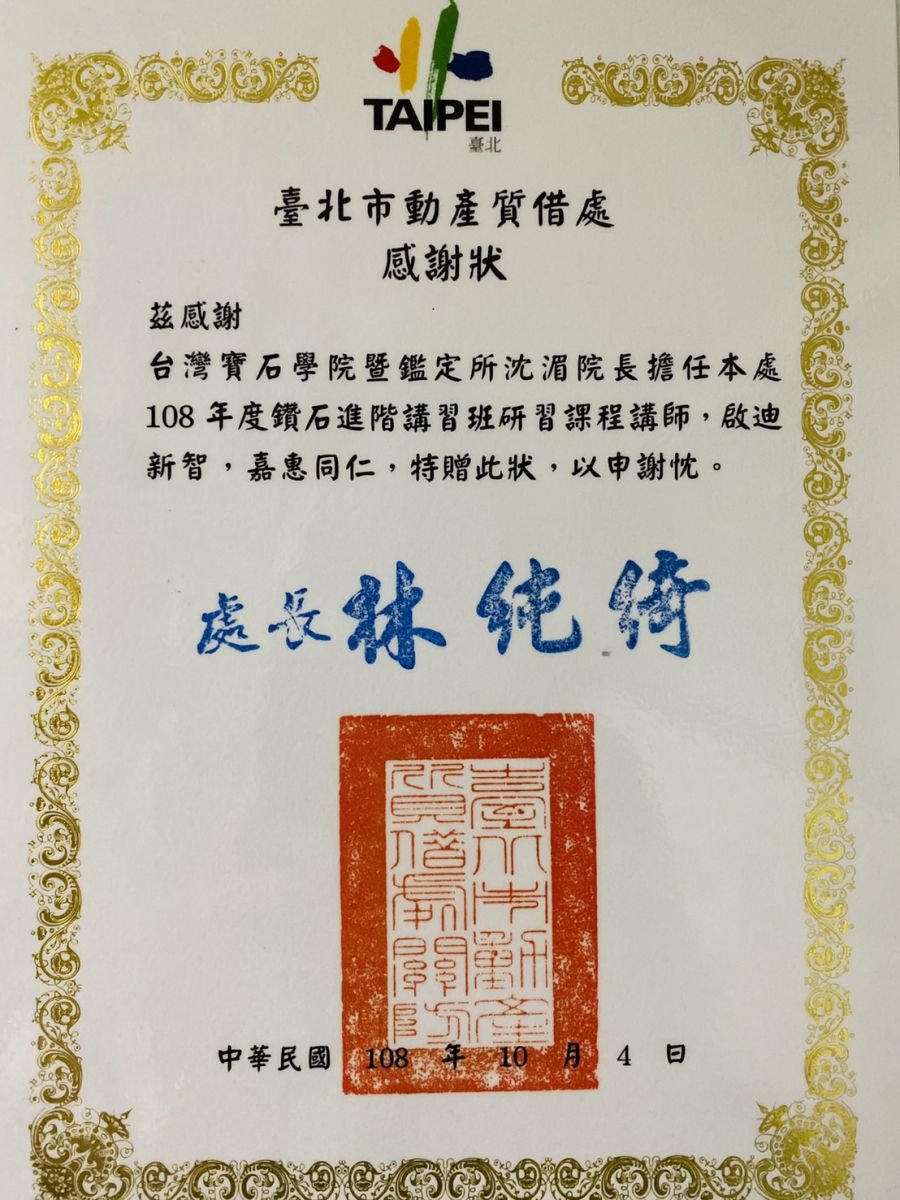 TAIPEI
臺北
臺北市動產質借處
感謝狀
茲感謝
台灣寶石學院暨鑑定所沈湄院長擔任本處
108 年度鑽石進階講習班研習課程講師，啟迪
新智，嘉惠同仁，特贈此狀，以申謝忱。
處長 林純綺
臺北市動產
質借處關防
中華民國 108 年 10 月 4 日